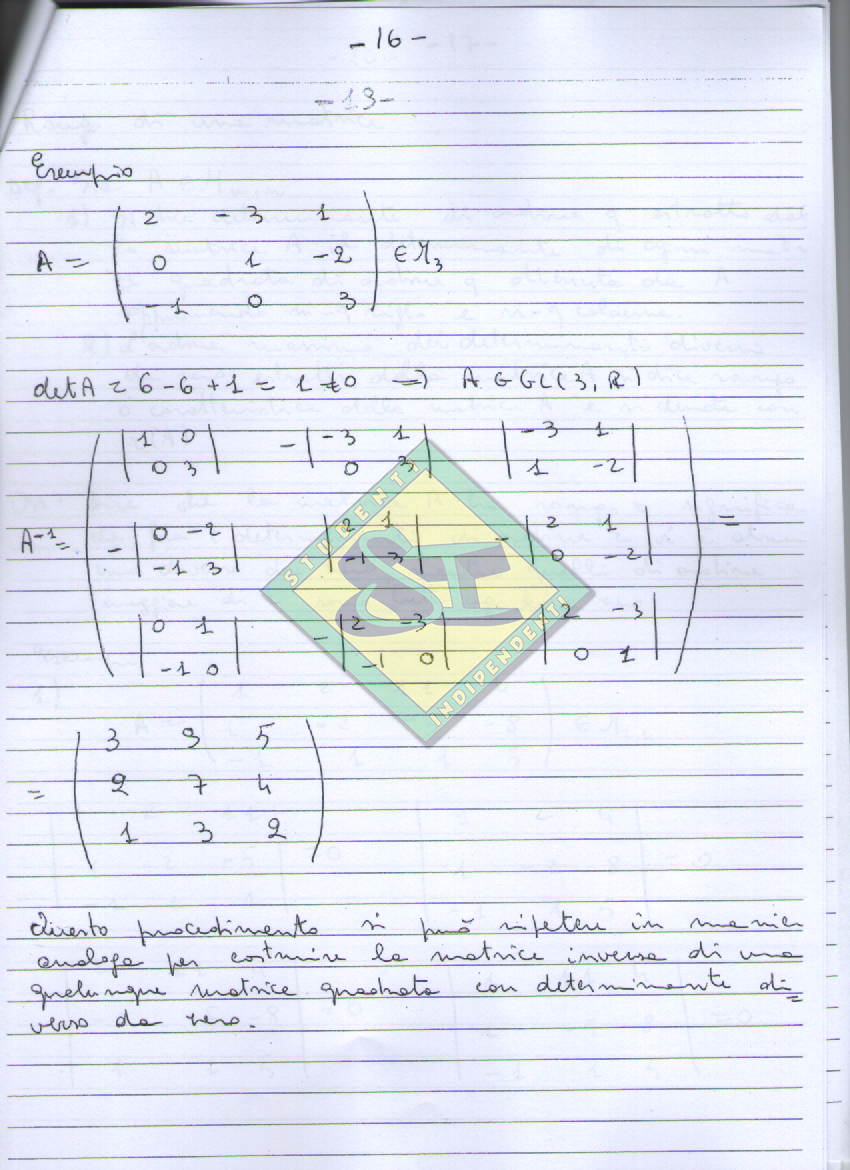 - 16 -
- 13 -
Esempio
A = ( 2 -3 1
0 1 -2
-1 0 3 ) ∈ M₃
det A = 6 - 6 + 1 = 1 ≠ 0 => A ∈ GL(3, R)
A⁻¹ = ( |1 0 / 0 3| -|-3 1 / 0 3| |-3 1 / 1 -2|
-|0 -2 / -1 3| |2 1 / -1 3| -|2 1 / 0 -2|
|0 1 / -1 0| -|2 -3 / -1 0| |2 -3 / 0 1| ) =
= ( 3 9 5
2 7 4
1 3 2 )
Questo procedimento si può ripetere in manier
analoga per costruire la matrice inversa di una
qualunque matrice quadrata con determinante di=
verso da zero.
STUDENTI
SI
INDIPENDENTI